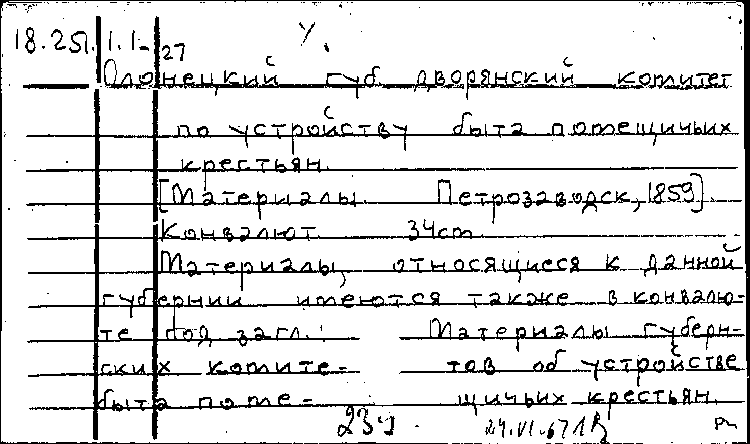 18.251.1.1-27 У.
Олонецкий губ. дворянский комитет
по устройству быта помещичьих
крестьян.
[Материалы. Петрозаводск, 1859].
Конволют 34cm
Материалы, относящиеся к данной
губернии имеются также в конволю-
те под загл.: Материалы губерн-
ских комите- тов об устройстве
быта поме- щичьих крестьян.
24.VI.67